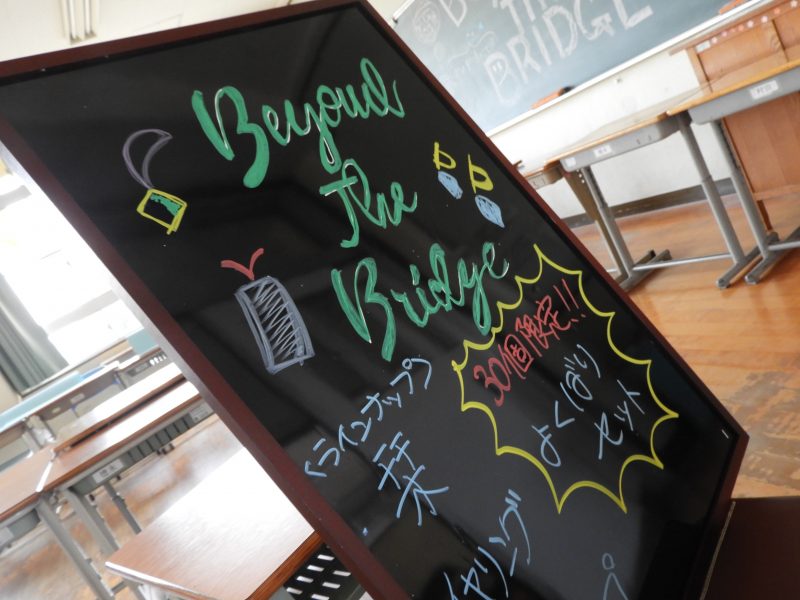 BRIDGE
Beyond
The
Bridge
30個限定!!
よくばり
セット
<ラインナップ>
栞
イヤリング